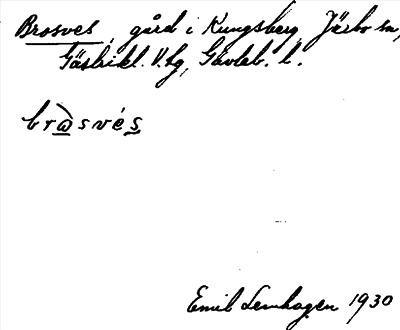 Brosves, gård i Kungsberg, Järbo sn,
Gästrikl. V. tg, Gävleb. l.
bròsvés
Emil Lenhagen 1930